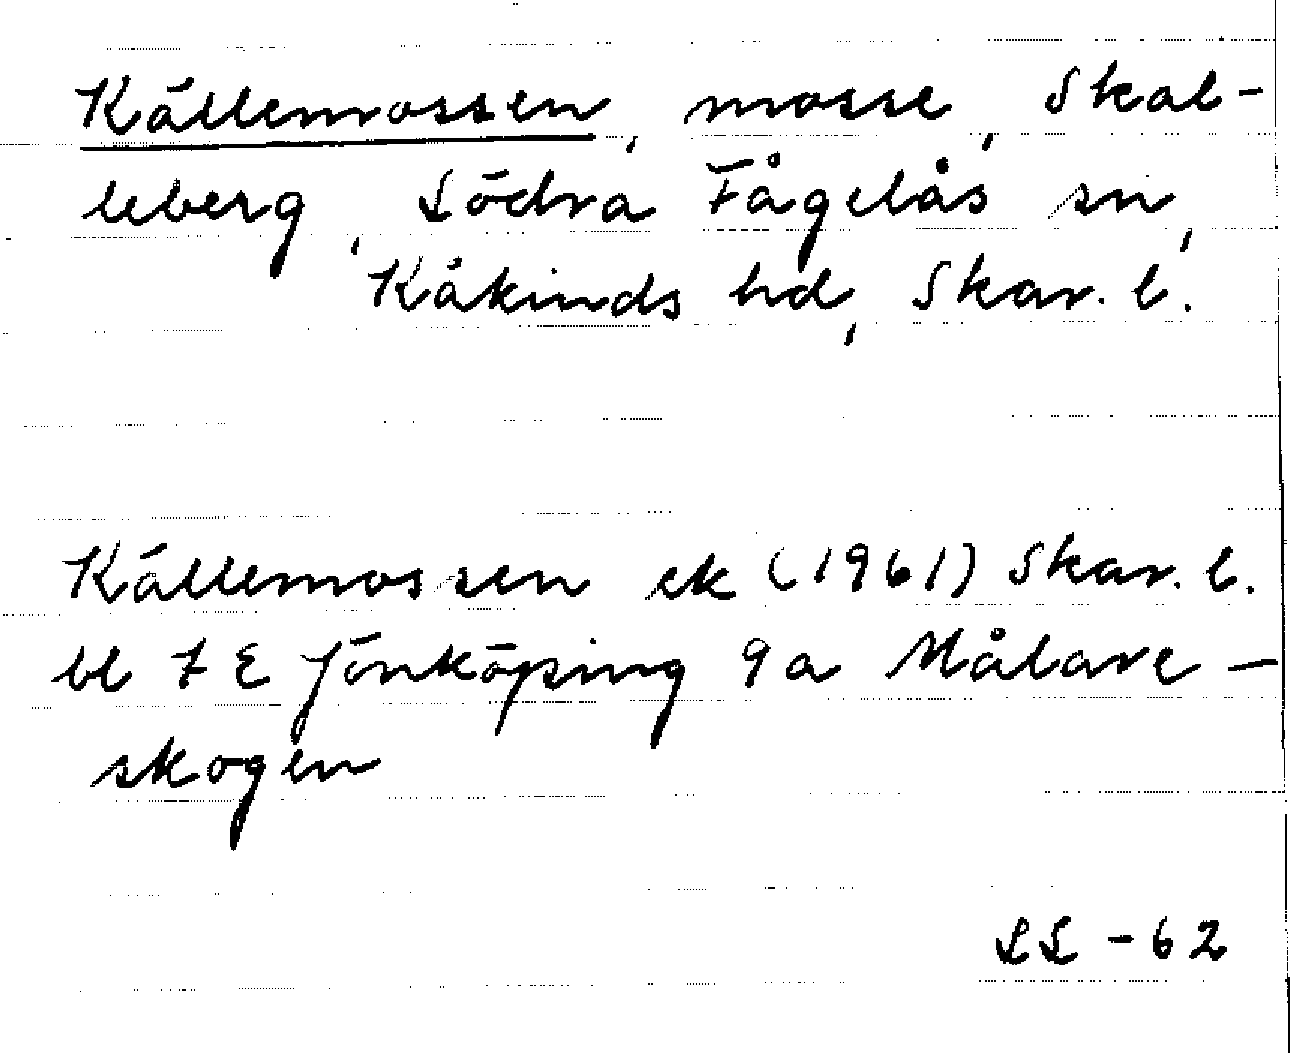 Källemossen, mosse, Skal-
leberg, Södra Fågelås sn,
Kåkinds hd, Skar. l.
Källemossen ek (1961) Skar. l.
bl 7 E Jönköping 9a Målare-
skogen
LL - 62